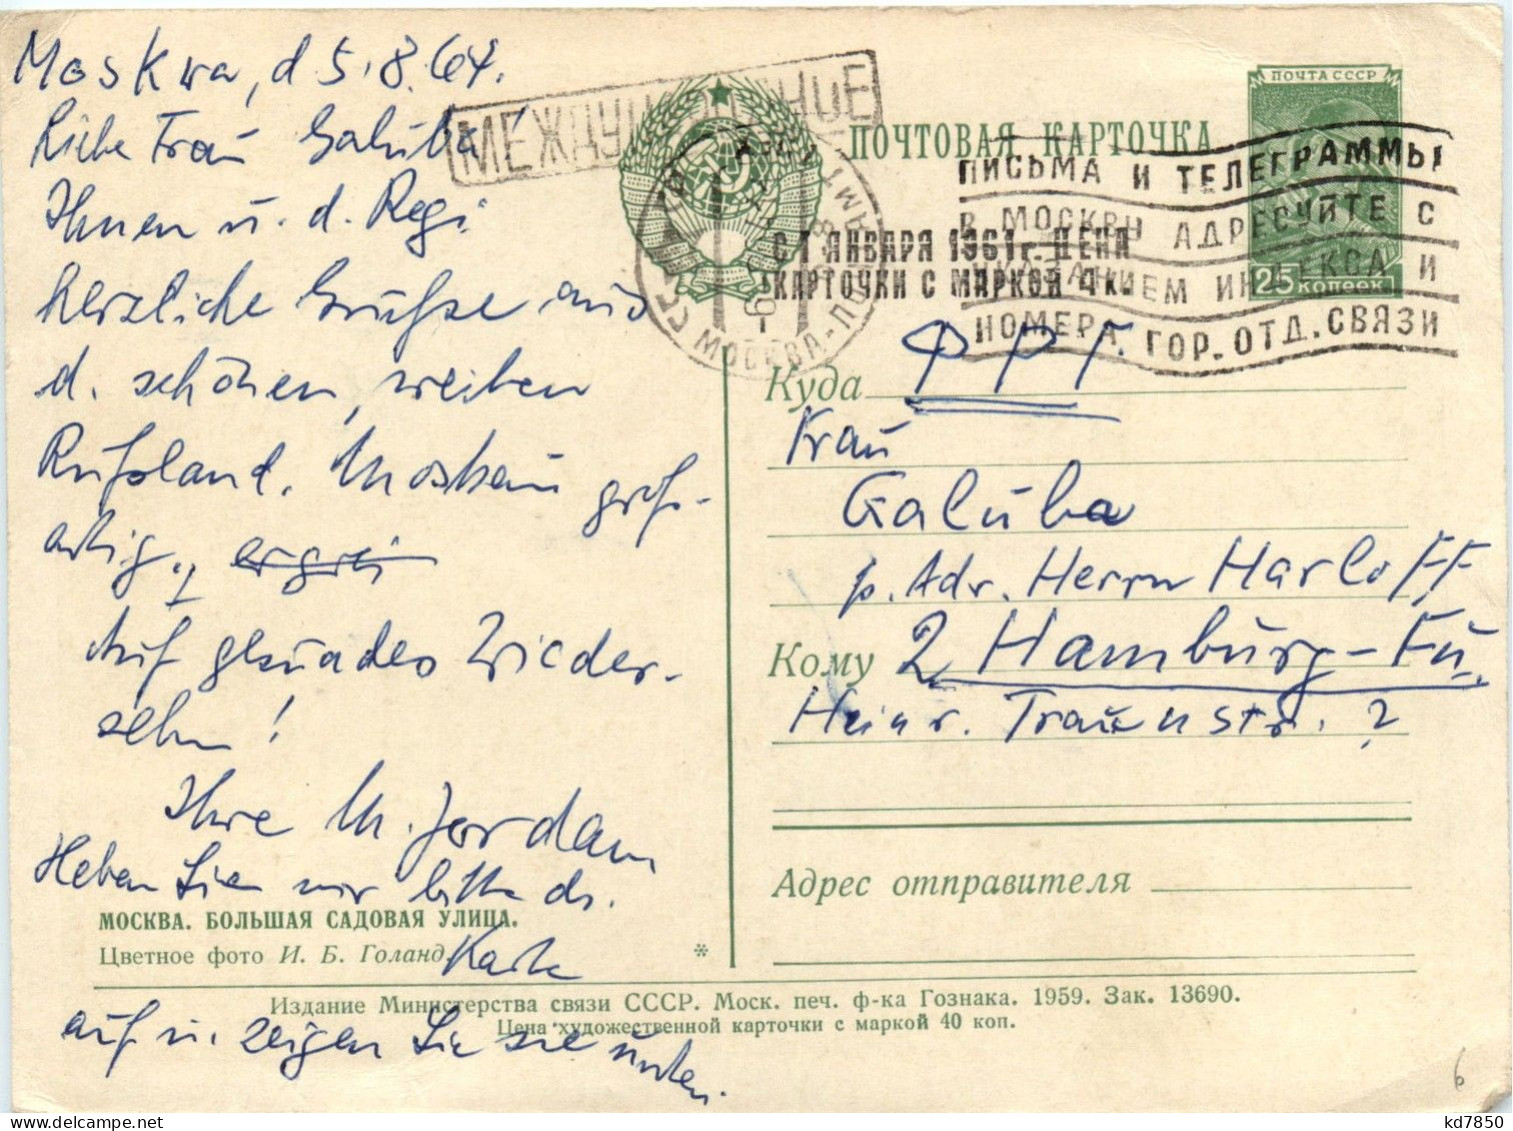 Moskwa, d 5.8.64.
Liebe Frau Galuba!
Ihnen u. d. Regi
herzliche Grüße aus
d. schönen, weiten
Rußland. Moskau groß-
artig.,
Auf gesundes Wieder-
sehn!
Ihre M. Jordan
Heben Sie mir bitte ds.
Karte
auf u. zeigen Sie sie unten.
МОСКВА. БОЛЬШАЯ САДОВАЯ УЛИЦА.
Цветное фото И. Б. Голанд
*
Издание Министерства связи СССР. Моск. печ. ф-ка Гознака. 1959. Зак. 13690.
Цена художественной карточки с маркой 40 коп.
МОСКВА
ПОЧТОВАЯ КАРТОЧКА
С 1 ЯНВАРЯ 1961 г. ЦЕНА
КАРТОЧКИ С МАРКОЙ 4 к.
ПОЧТА СССР
25 КОПЕЕК
ПИСЬМА И ТЕЛЕГРАММЫ
В МОСКВУ АДРЕСУЙТЕ С
УКАЗАНИЕМ ИНДЕКСА И
НОМЕРА ГОР. ОТД. СВЯЗИ
Куда ФРГ.
Frau
Galuba
p. Adr. Herrn Harloff
Кому 2 Hamburg-Fu.
Heinr. Traunstr. 2
Адрес отправителя
6
kd7850